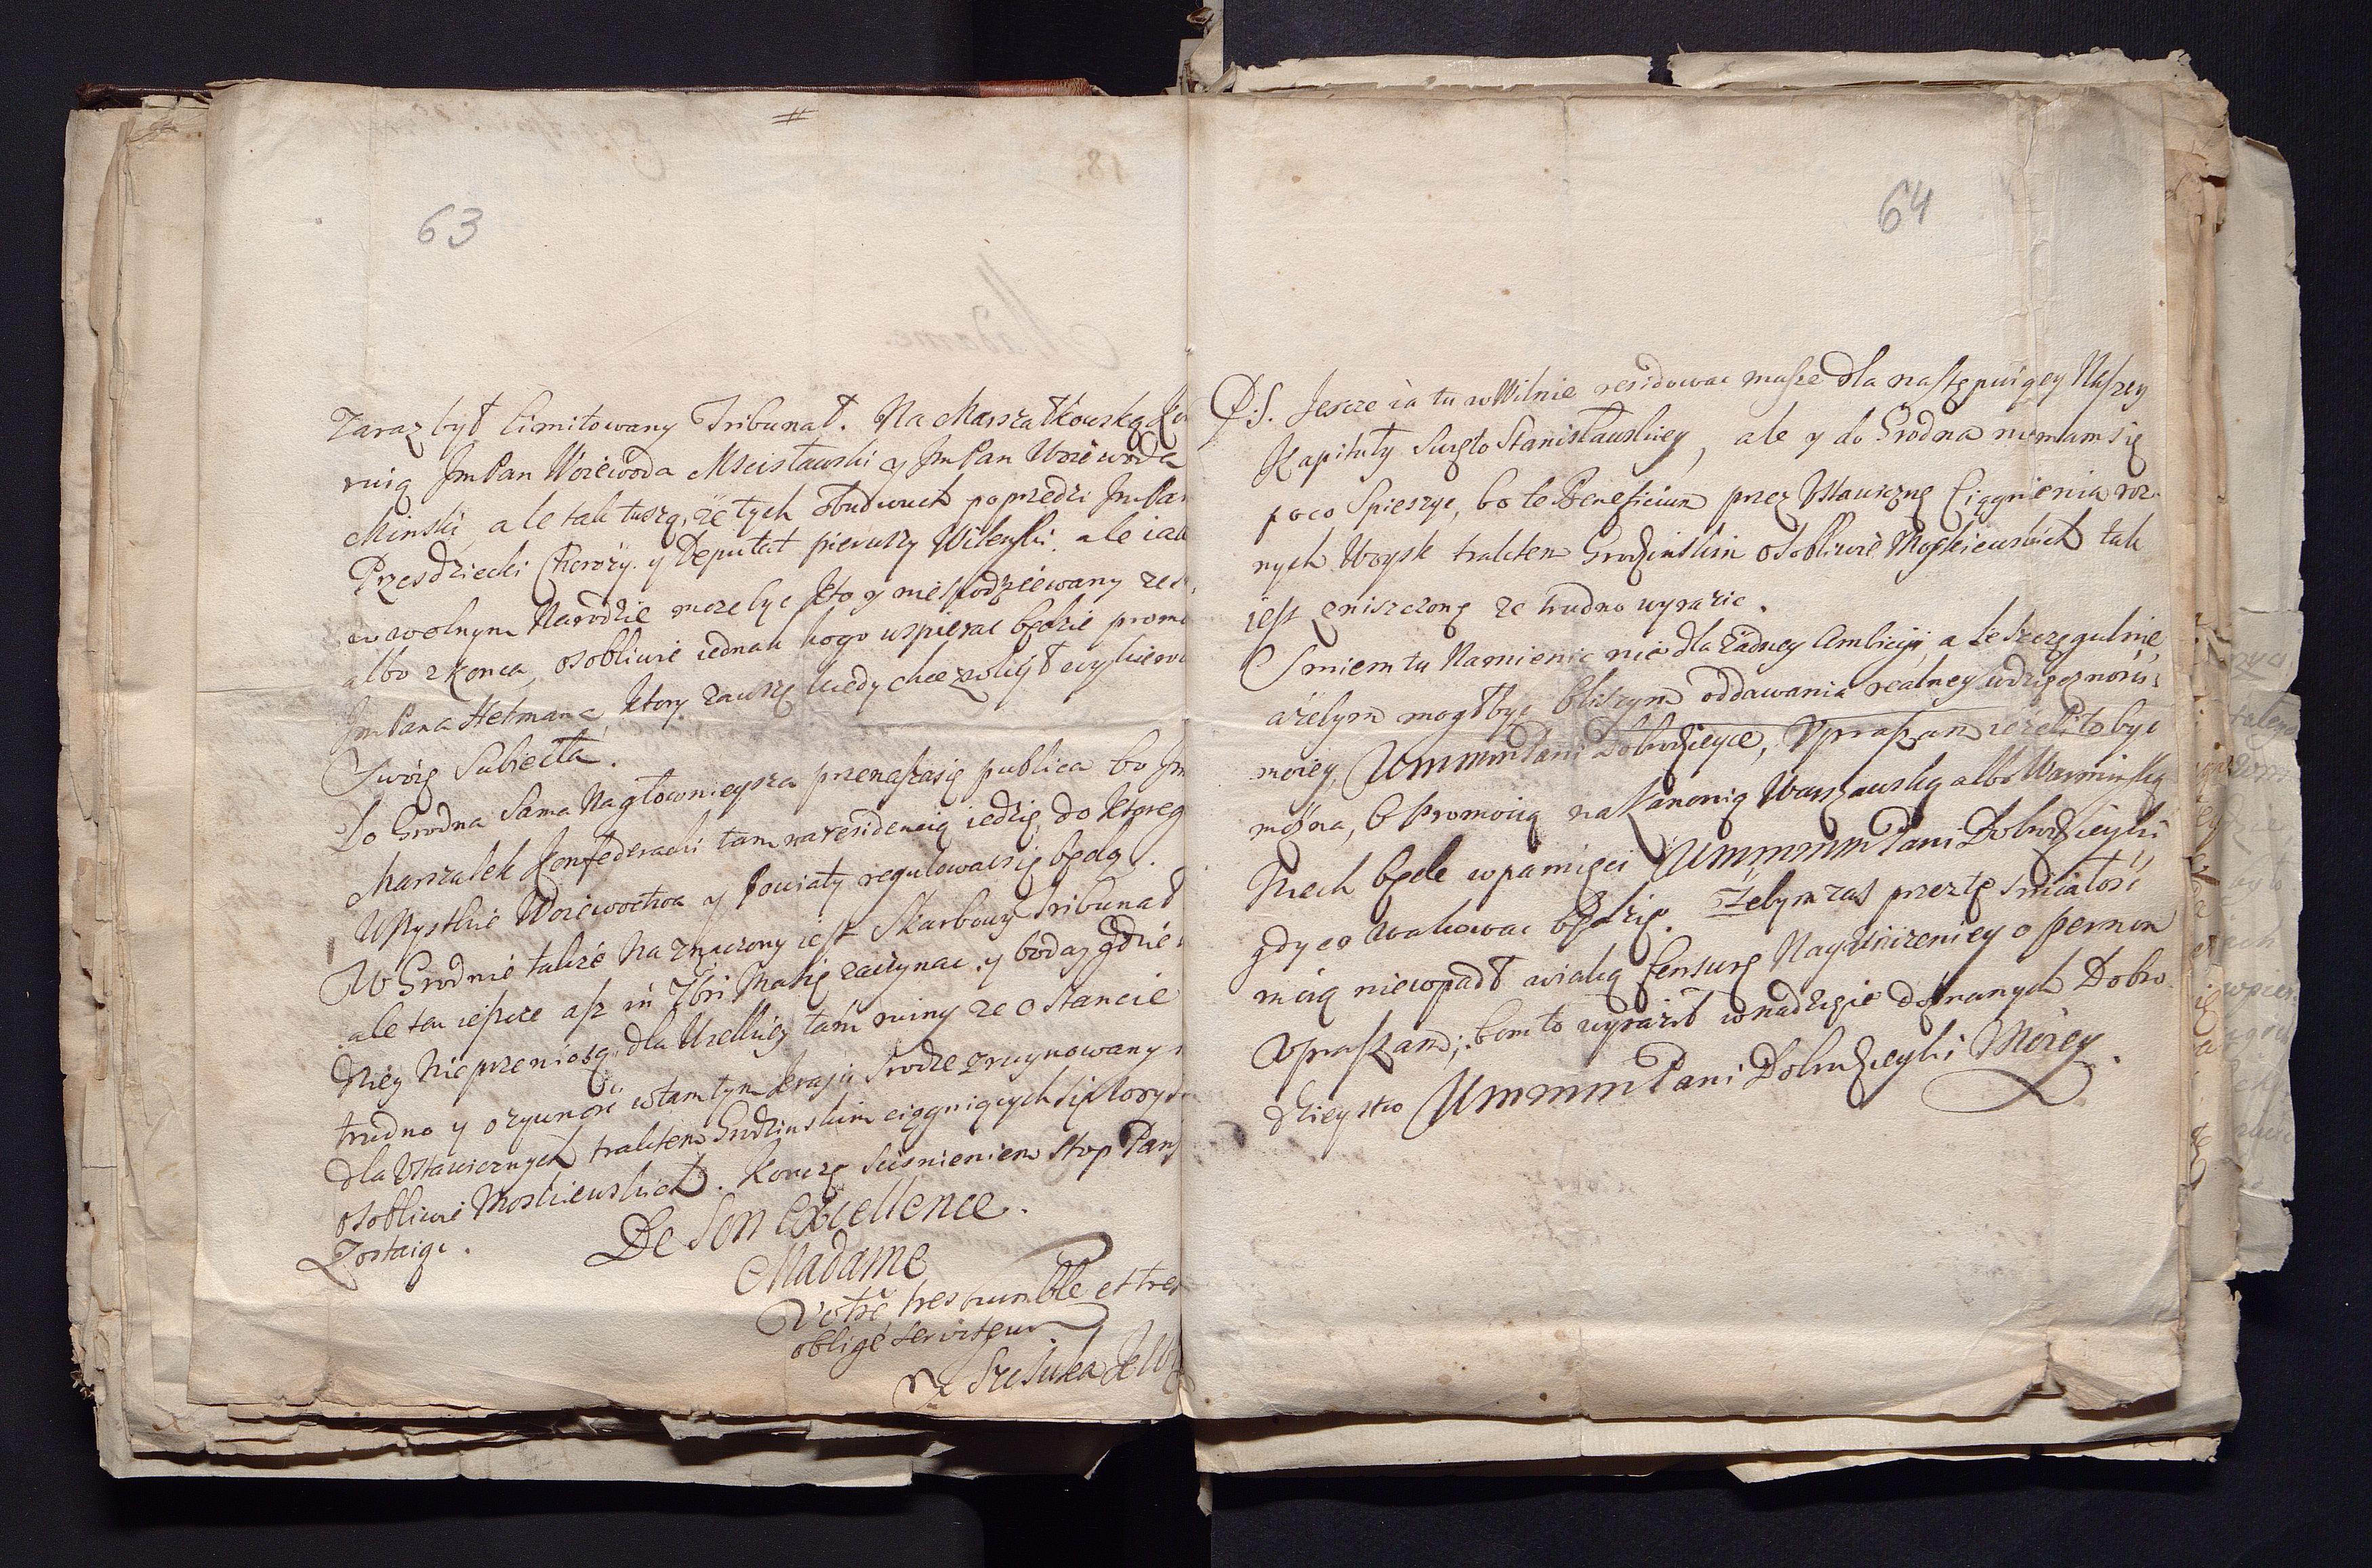 #
63
Zaraz był limitowany Tribunał. Na Marszałkowską
ruią JmPan Woiewoda Mscisławski y JmPan Woiewoda
Minski, ale tak tuszą, że tych obudwuch poprzedzi JmPan
Przesdziecki Chorąży y Deputat pierwszy Wilenski. ale iak
w wolnym Narodzie moze byc kto y niespodziewany
albo z konca, osobliwie iednak kogo wspierac będzie
JmPana Hetmana, ktory zawsze kiedy chce
Swoię Subiecta.
Do Grodna Sama Nagłownieysza przenaszasię publica bo Jm
Marszałek Konfederacki tam na residencią iedzie, do ktoreg
Wszystkie Woiewodztwa y Powiaty regulowacsię będą.
W Grodnie także Naznaczony iest Skarbowy Tribunał
ale ten ieszcze asz in 7bri Masię zaczynac. y boday gdzie
dziey Nieprzeniosą, dla Wielkiey tam ruiny ze o stancie
trudno y o zywnosc w tamtym kraju srodze zruynowany
dla Ustawicznych traktem Grodzinskim ciągniących się
osobliwie Moskiewskich. Koncze scisnieniem Stop Pans
Zostaiąc.
De Son Excellence.
Madame
Votre tres humble et tres
obligé serviteur
64
P.S. Jescze ia tu w Wilnie residowac musze dla następuiącey Naszey
Kapituły Swęto Stanisławskiey, ale y do Grodna niemamsię
poco Spieszyc, bo te Beneficium przez Ustawiczne Ciągnienia roz-
nych Woysk traktem Grodzinskim osobliwie Moskiewskich tak
iest zniszczone ze trudno wyrazic.
Smiem tu Namienic nie dla żadney Ambicyi, ale szczegulnie,
ażebym mogł byc bliszym oddawania realney wdzięcznosci
moiey, WmmmPani Dobrodzieyce, Upraszam ieżeli to byc
można, o Promocią na Kanonią Warszawską albo Warminską
Niech będe w pamięci WmmmmPani Dobrodzieyki
gdy co wakowac będzie. Żebym zas przez tę smiałosc
moią niewpadł wiaką Censurę Nayuniżeniey o pernon
Upraszam; bom to wyraził w nadzieie doznanych Dobro-
dzieystw WmmmPani Dobrodzieyki Moiey.